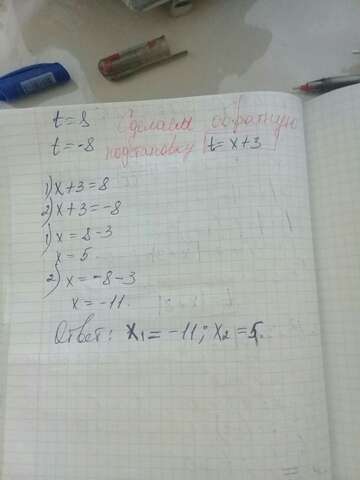 t = 8 Сделаем обратную
t = -8 подстановку t = x+3
1) x+3 = 8
2) x+3 = -8
1) x = 8-3
x = 5.
2) x = -8-3
x = -11.
Ответ: x₁ = -11; x₂ = 5.